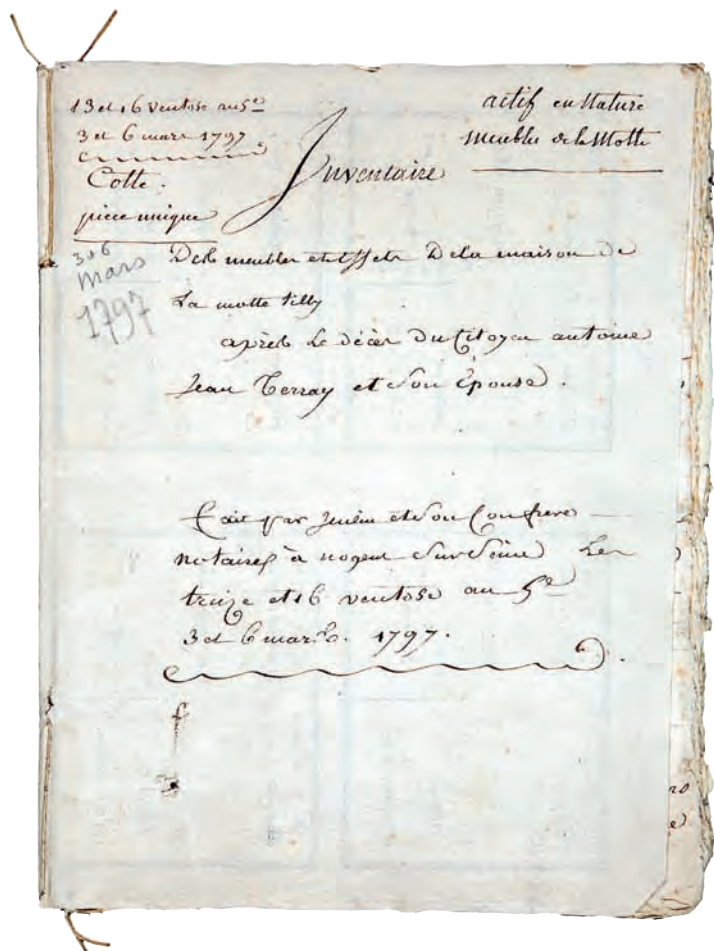 13 et 16 ventose an 5e
3 et 6 mars 1797
Cotte
piece unique
actif en Nature
meubles de la Motte
Inventaire
3 et 6
mars
1797
Des meubles et effets De la maison de
La motte tilly
après Le décès Du Citoyen antoine
Jean Terray et Son Épouse.
fait par et Son Confrere
notaires à nogent Sur Seine Les
treize et 16 ventose an 5e
3 et 6 mars. 1797.